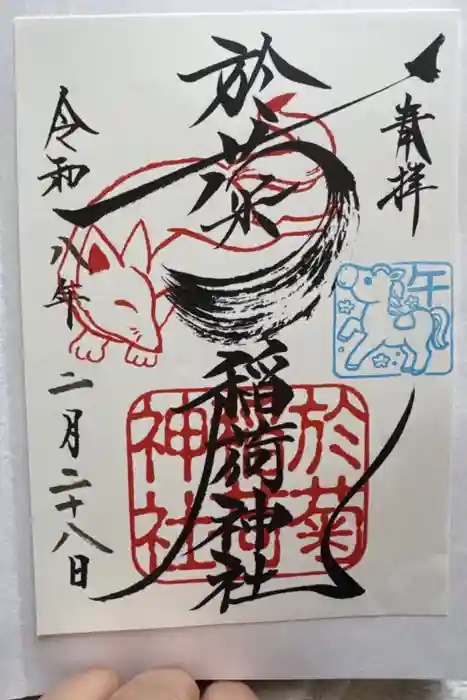 奉拝
午
於菊
稲荷神社
於菊
稲荷
神社
令和八年
二月二十八日